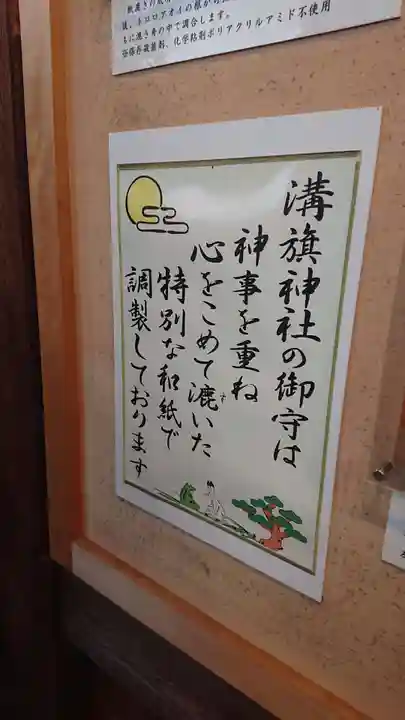 後、トロロアオイの根から
もに漉き舟の中で調合します。
化学粘剤ポリアクリルアミド不使用
溝旗神社の御守は
神事を重ね
心をこめて漉いた
す
特別な和紙で
調製しております